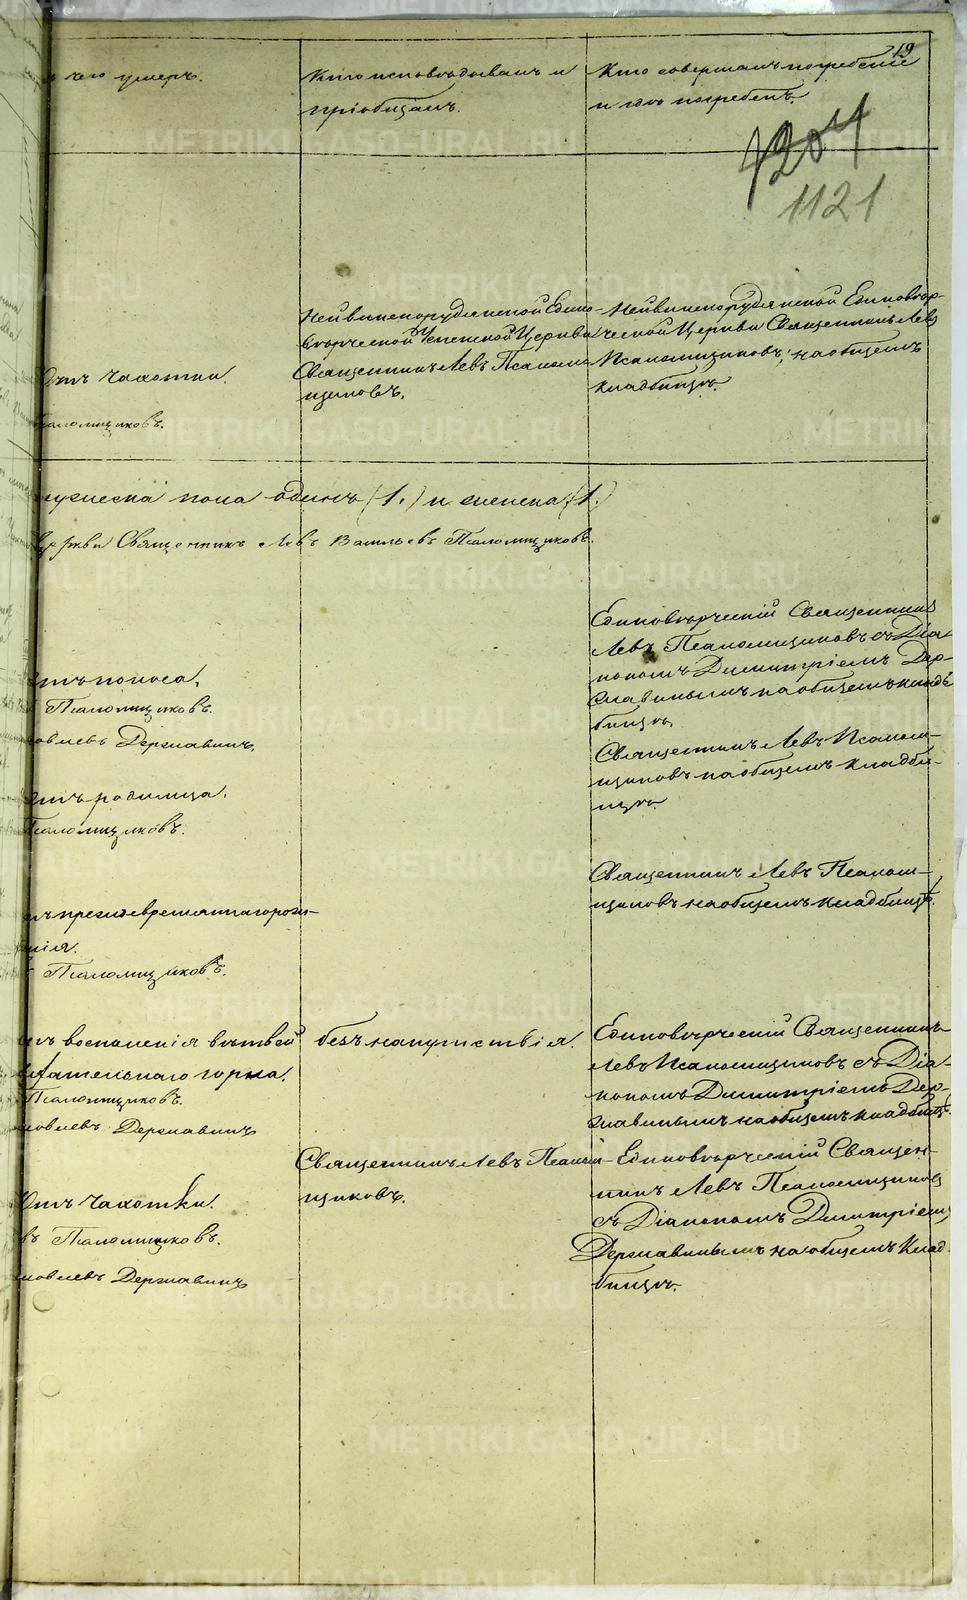 19
чего умеръ.
Кто исповѣдывалъ и
пріобщалъ.
Кто совершалъ погребеніе
и гдѣ погребенъ.
1204
1121
Отъ чахотки.
Псаломщиковъ.
Нейвинскорудянской Едино-
вѣрческой Успенской Церкви
Священникъ Левъ Псаломъ
щиковъ.
Нейвинскорудянской Единовѣр-
ческой Церкви Священникъ Левъ
Псаломщиковъ, на общемъ
кладбищѣ.
мужеска пола одинъ (1.) и женска (1.)
Церкви Священникъ Левъ Васильевъ Псаломщиковъ.
Отъ поноса.
Псаломщиковъ.
Яковлевъ Державинъ
Единовѣрческій Священникъ
Левъ Псаломщиковъ съ Діа-
кономъ Димитріемъ Дер-
жавинымъ на общемъ клад
бищѣ.
Отъ родимца.
Псаломщиковъ.
Священникъ Левъ Псалом-
щиковъ на общемъ кладби-
щѣ.
отъ преждевременнаго рож-
денія.
Псаломщиковъ.
Священникъ Левъ Псалом-
щиковъ на общемъ кладбищѣ.
отъ воспаленія вѣтвей
дыхательнаго горла.
Псаломщиковъ.
Яковлевъ Державинъ
безъ напутствія.
Единовѣрческій Священникъ
Левъ Псаломщиковъ съ Діа-
кономъ Димитріемъ Дер-
жавинымъ на общемъ кладбищѣ.
Отъ чахотки.
въ Псаломщиковъ.
Яковлевъ Державинъ
Священникъ Левъ Псалом-
щиковъ.
Единовѣрческій Священ-
никъ Левъ Псаломщиковъ
съ Діакономъ Димитріемъ
Державинымъ на общемъ клад
бищѣ.
METRIKI.GASO-URAL.RU